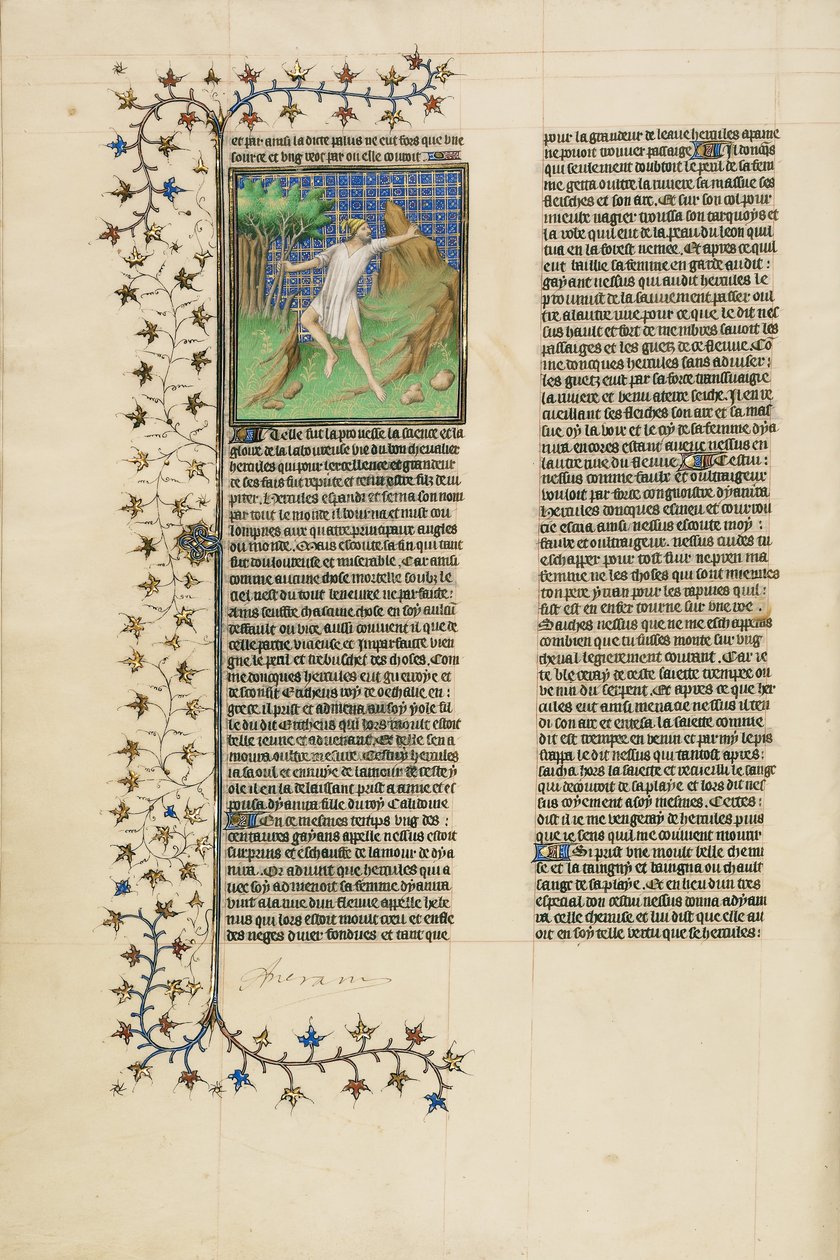 et par ainsi la dicte palus ne eut fors que vne
source et vng ruot par ou elle couroit
Telle fut la prouesse la science et la
gloire de la labourieuse vie du bon cheualier
hercules qui pour lexcellence et grandeur
de ses fais fut repute et tenu estre filz de iu
piter. Hercules espandi et sema son nom
par tout le monde il bourna et mist cou
lompnes aux quatre principaux angles
du monde. Mais escoute sa fin qui tant
fut douloureuse et miserable. Car ainsi
comme aucune chose mortelle soubz le
ciel nest du tout beneuree ne parfaicte:
Ains seuffre chascune chose en soy aulcun
deffault ou vice, aussi conuient il que de
celle partie vicieuse et imparfaicte vien
gne le peril et trebuschet des choses. Com
me doncques hercules eut guerroye et
desconfit Ertheus roy de oechalie en:
grece. il prist et admena auec soy yole fil
le du dit Ertheus qui lors moult estoit
belle ieune et aduenant. Et delle sen a
moura oultre mesure. Cestui hercules
ia saoul et ennuye de lamour de ceste y
ole il en la delaissant prist a amie et es
pousa dyanira fille du roy Calidoine
En ce mesmes temps vng des:
centaures gayans appelle nessus estoit
surprins et eschauffe de lamour de dya
nira. Or aduint que hercules qui a
uec soy admenoit sa femme dyanira
vint a la riue dun fleuue appelle hebe
nus qui lors estoit moult creu et enfle
des neges diuer fondues et tant que
pour la grandeur de leaue hercules a paine
ne pouoit trouuer passaige Il doncqs
qui seulement doubtoit le peril de sa fem
me getta oultre la riuiere sa massue ses
fleisches et son arc. Et sur son col pour
mieulx nagier troussa son tarquoys et
la robe quil eut de la peau du leon quil
tua en la forest nemee. Et apres ce quil
eut baillie sa femme en garde au dit:
gayant nessus qui au dit hercules le
promist de la sauuement passer oul
tre a lautre riue pour ce que le dit nes
sus hault et fort de membres sauoit les
passaiges et les guetz de ce fleuue. Co
me doncques hercules sans aduiser:
les guetz eust par sa force transuaigie
la riuiere et venu a terre seiche. Il en re
cueillant ses fleiches son arc et sa mas
sue oy la voix et le cry de sa femme dya
nira encores estant auec nessus en
lautre riue du fleuue Cestui:
nessus comme faulx et oultraigeux
vouloit par force congnoistre dyanira
Hercules doncques esmeu et courrou
cie escria ainsi. nessus escoute moy:
faulx et oultraigeux. nessus cuides tu
eschapper pour tost fuir ne pren ma
femme ne les choses qui sont miennes
ton pere yxian pour les rapines quil:
fist est en enfer tourne sur vne roe.
Saiches nessus que ne me eschappras
combien que tu fusses monte sur vng
cheual legierement courant. Car ie
te blecray de ceste saiette trempee ou
venin du serpent. Et apres ce que her
cules eut ainsi menacie nessus il ten
di son arc et entesa. la saiette comme
dit est trempee en venin et parmy le pis
frappa le dit nessus qui tantost apres:
saicha hors la saiette et recueilli le sange
qui decouroit de sa playe et lors dit nes
sus coyement a soy mesmes. Certes:
dist il ie me vengeray de hercules puis
que ie sens quil me conuient mourir
Si prist vne moult belle chemi
se et la taingny et baingna ou chault
sange de sa playe. Et en lieu dun tres
especial don cestui nessus donna a dyani
ra celle chemise et lui dist que elle au
oit en soy telle vertu que se hercules: